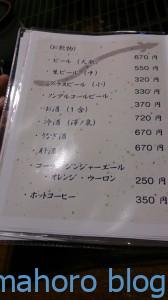 (お飲物)
・ビール (大瓶) 670円
・生ビール (中) 550円
ビール (小) 320円
・ノンアルコールビール 330円
・お酒 (1合) 370円
・冷酒 (澤ノ泉) 670円
・うなぎ酒 670円
酒 670円
・コーラ・ジンジャーエール
・オレンジ・ウーロン 250円
・ホットコーヒー 350円
mahoro blog